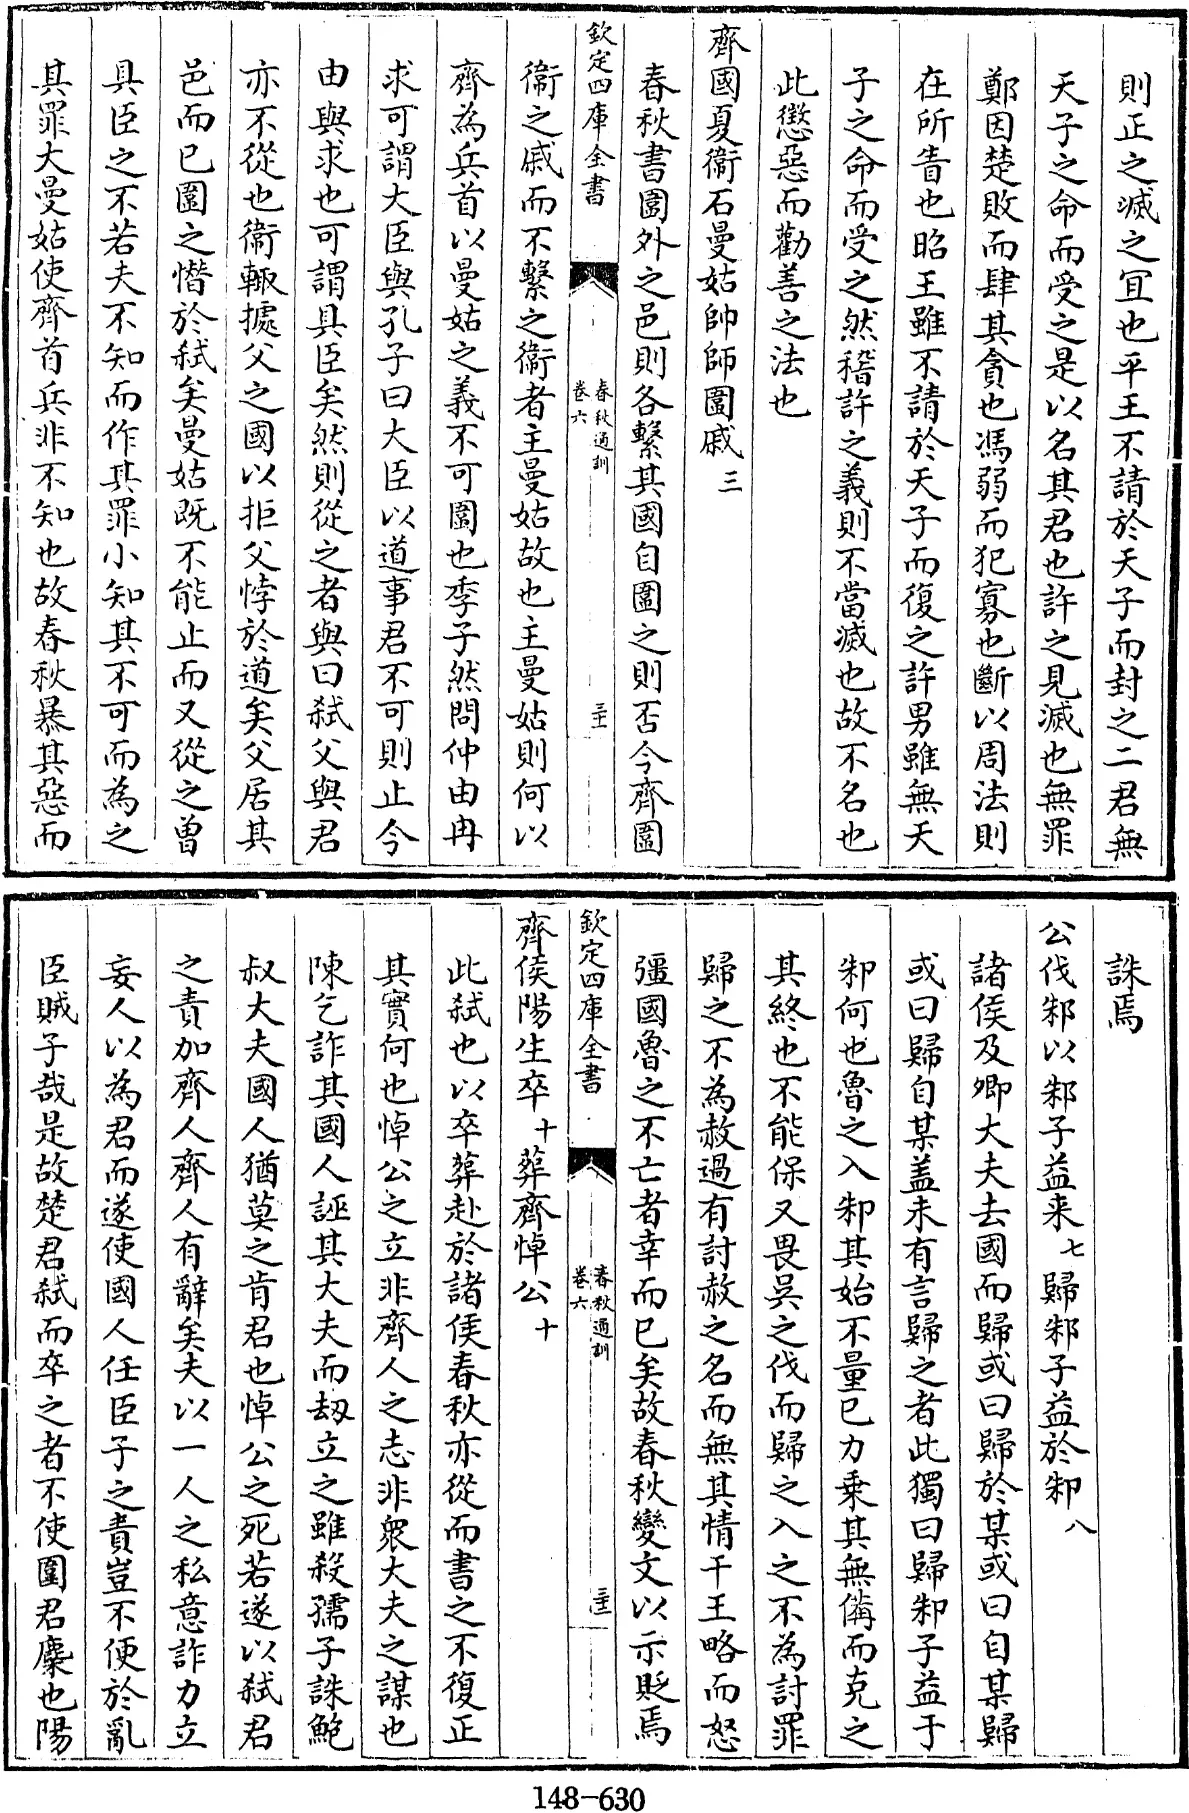 則正之滅之宜也平王不請於天子而封之二君無
天子之命而受之是以名其君也許之見滅也無罪
鄭因楚敗而肆其貪也馮弱而犯寡也斷以周法則
在所眚也昭王雖不請於天子而復之許男雖無天
子之命而受之然稽許之義則不當滅也故不名也
此懲惡而勸善之法也
齊國夏衞石曼姑帥師圍戚三
春秋書圍外之邑則各繫其國自圍之則否今齊圍
欽定四庫全書
春秋通訓
卷六
三十一
衞之戚而不繫之衞者主曼姑故也主曼姑則何以
齊為兵首以曼姑之義不可圍也季子然問仲由冉
求可謂大臣與孔子曰大臣以道事君不可則止今
由與求也可謂具臣矣然則從之者與曰弑父與君
亦不從也衞輙據父之國以拒父悖於道矣父居其
邑而已圍之憯於弑矣曼姑既不能止而又從之曾
具臣之不若夫不知而作其罪小知其不可而為之
其罪大曼姑使齊首兵非不知也故春秋暴其惡而
誅焉
公伐邾以邾子益来七歸邾子益於邾八
諸侯及卿大夫去國而歸或曰歸於某或曰自某歸
或曰歸自某盖未有言歸之者此獨曰歸邾子益于
邾何也魯之入邾其始不量已力乗其無備而克之
其終也不能保又畏吳之伐而歸之入之不為討罪
歸之不為赦過有討赦之名而無其情干王略而怒
彊國魯之不亡者幸而已矣故春秋變文以示貶焉
欽定四庫全書
春秋通訓
卷六
三十二
齊侯陽生卒十葬齊悼公十
此弑也以卒葬赴於諸侯春秋亦從而書之不復正
其實何也悼公之立非齊人之志非衆大夫之謀也
陳乞詐其國人誣其大夫而刼立之雖殺孺子誅鮑
叔大夫國人猶莫之肯君也悼公之死若遂以弑君
之責加齊人齊人有辭矣夫以一人之私意詐力立
妄人以為君而遂使國人任臣子之責豈不便於亂
臣賊子哉是故楚君弑而卒之者不使圍君麇也陽
148-630